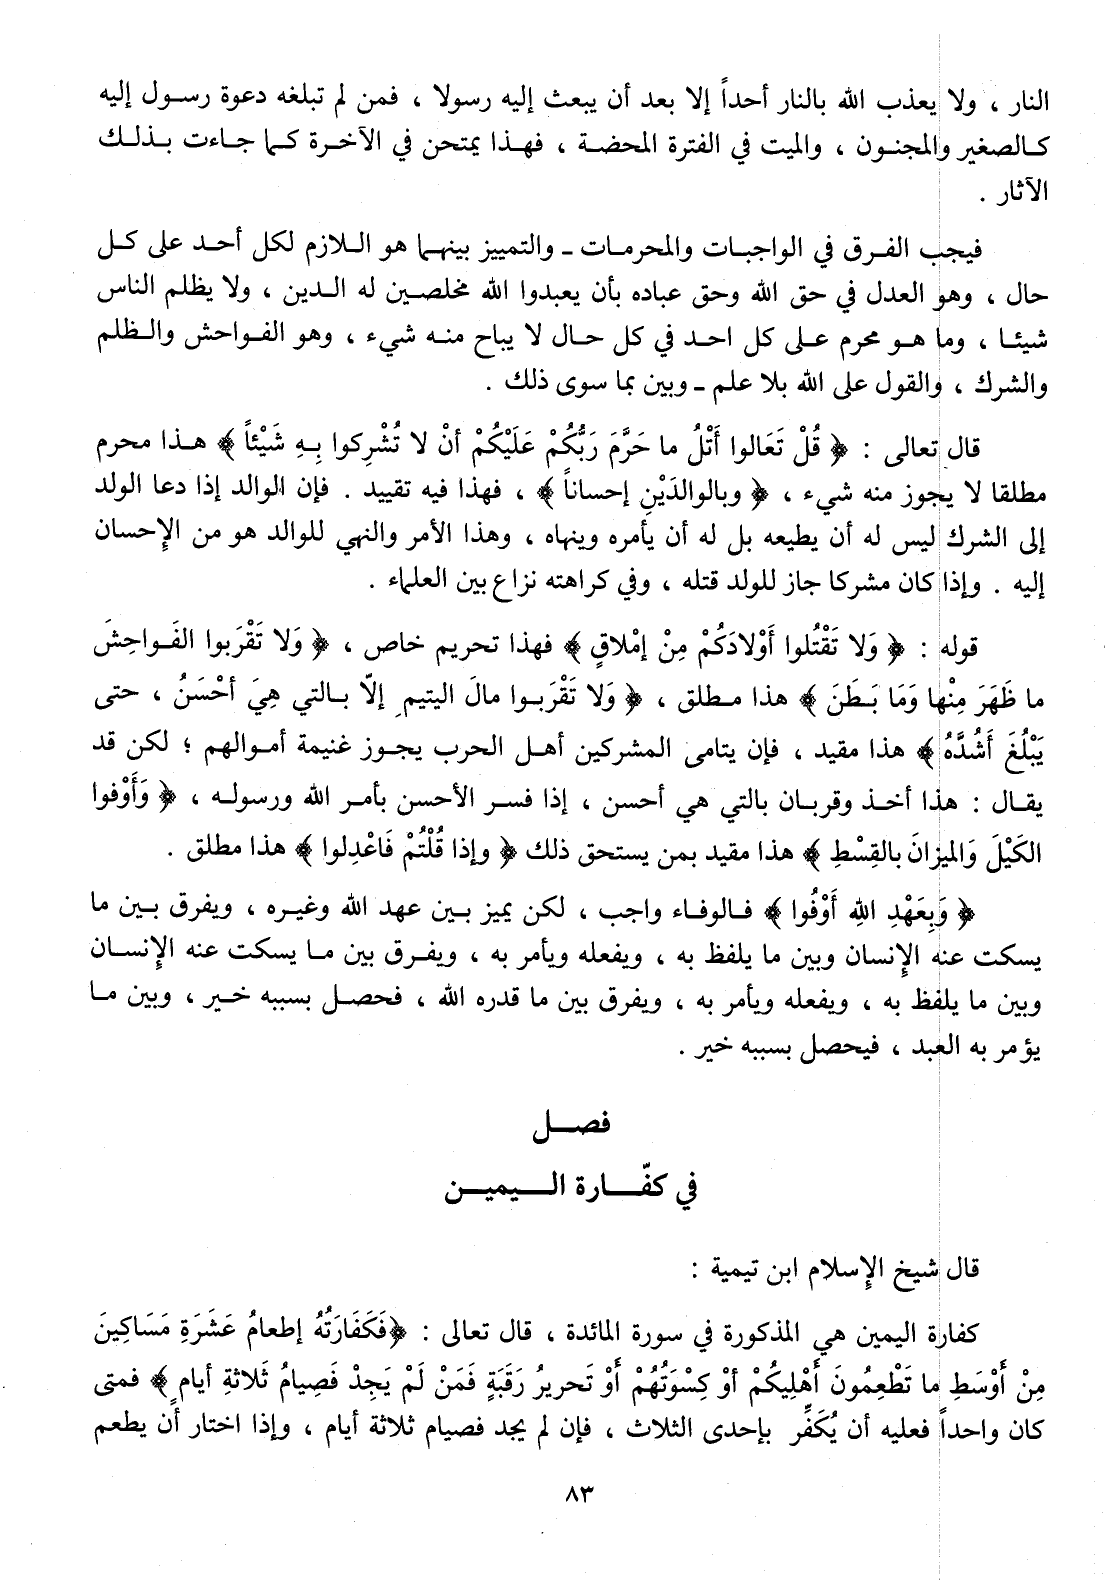 النار ، ولا يعذب الله بالنار أحداً إلا بعد أن يبعث إليه رسولا ، فمن لم تبلغه دعوة رسول إليه
كالصغير والمجنون ، والميت في الفترة المحضة ، فهذا يمتحن في الآخرة كما جاءت بذلك
الآثار .
فيجب الفرق في الواجبات والمحرمات ـ والتمييز بينهما هو اللازم لكل أحد على كل
حال ، وهو العدل في حق الله وحق عباده بأن يعبدوا الله مخلصين له الدين ، ولا يظلم الناس
شيئا ، وما هو محرم على كل احد في كل حال لا يباح منه شيء ، وهو الفواحش والظلم
والشرك ، والقول على الله بلا علم ـ وبين بما سوى ذلك .
قال تعالى : ﴿ قُلْ تَعَالوا أَتْلُ ما حَرَّمَ رَبُّكُمْ عَلَيْكُمْ أنْ لا تُشْرِكوا بِهِ شَيْئاً ﴾ هذا محرم
مطلقا لا يجوز منه شيء ، ﴿ وبالوالدَيْنِ إحساناً ﴾ ، فهذا فيه تقييد . فإن الوالد إذا دعا الولد
إلى الشرك ليس له أن يطيعه بل له أن يأمره وينهاه ، وهذا الأمر والنهي للوالد هو من الإحسان
إليه . وإذا كان مشركا جاز للولد قتله ، وفي كراهته نزاع بين العلماء .
قوله : ﴿ وَلا تَقْتُلوا أَوْلادَكُمْ مِنْ إمْلاقٍ ﴾ فهذا تحريم خاص ، ﴿ وَلا تَقْرَبوا الفَواحِشَ
ما ظَهَرَ مِنْها وَمَا بَطَنَ ﴾ هذا مطلق ، ﴿ وَلا تَقْرَبوا مالَ اليتيمِ إلاّ بالتي هِيَ أحْسَنُ ، حتى
يَبْلُغَ أَشُدَّهُ ﴾ هذا مقيد ، فإن يتامى المشركين أهل الحرب يجوز غنيمة أموالهم ؛ لكن قد
يقال : هذا أخذ وقربان بالتي هي أحسن ، إذا فسر الأحسن بأمر الله ورسوله ، ﴿ وَأَوْفوا
الكَيْلَ وَالميزانَ بالقِسْطِ ﴾ هذا مقيد بمن يستحق ذلك ﴿ وإذا قُلْتُمْ فَاعْدِلوا ﴾ هذا مطلق .
﴿ وَبِعَهْدِ اللهِ أَوْفُوا ﴾ فالوفاء واجب ، لكن يميز بين عهد الله وغيره ، ويفرق بين ما
يسكت عنه الإنسان وبين ما يلفظ به ، ويفعله ويأمر به ، ويفرق بين ما يسكت عنه الإنسان
وبين ما يلفظ به ، ويفعله ويأمر به ، ويفرق بين ما قدره الله ، فحصل بسببه خير ، وبين ما
يؤمر به العبد ، فيحصل بسببه خير .
فصل
في كفّارة اليمين
قال شيخ الإسلام ابن تيمية :
كفارة اليمين هي المذكورة في سورة المائدة ، قال تعالى : ﴿فَكَفَارَتُهُ إطعامُ عَشَرَةِ مَسَاكِينَ
مِنْ أَوْسَطِ ما تَطْعِمُونَ أَهْلِيكُمْ أوْ كِسْوَتُهُمْ أَوْ تَحريرُ رَقَبَةٍ فَمَنْ لَمْ يَجِدْ فَصِيامُ ثَلاثةِ أيامٍ ﴾ فمتى
كان واحداً فعليه أن يُكَفِّر بإحدى الثلاث ، فإن لم يجد فصيام ثلاثة أيام ، وإذا اختار أن يطعم
٨٣